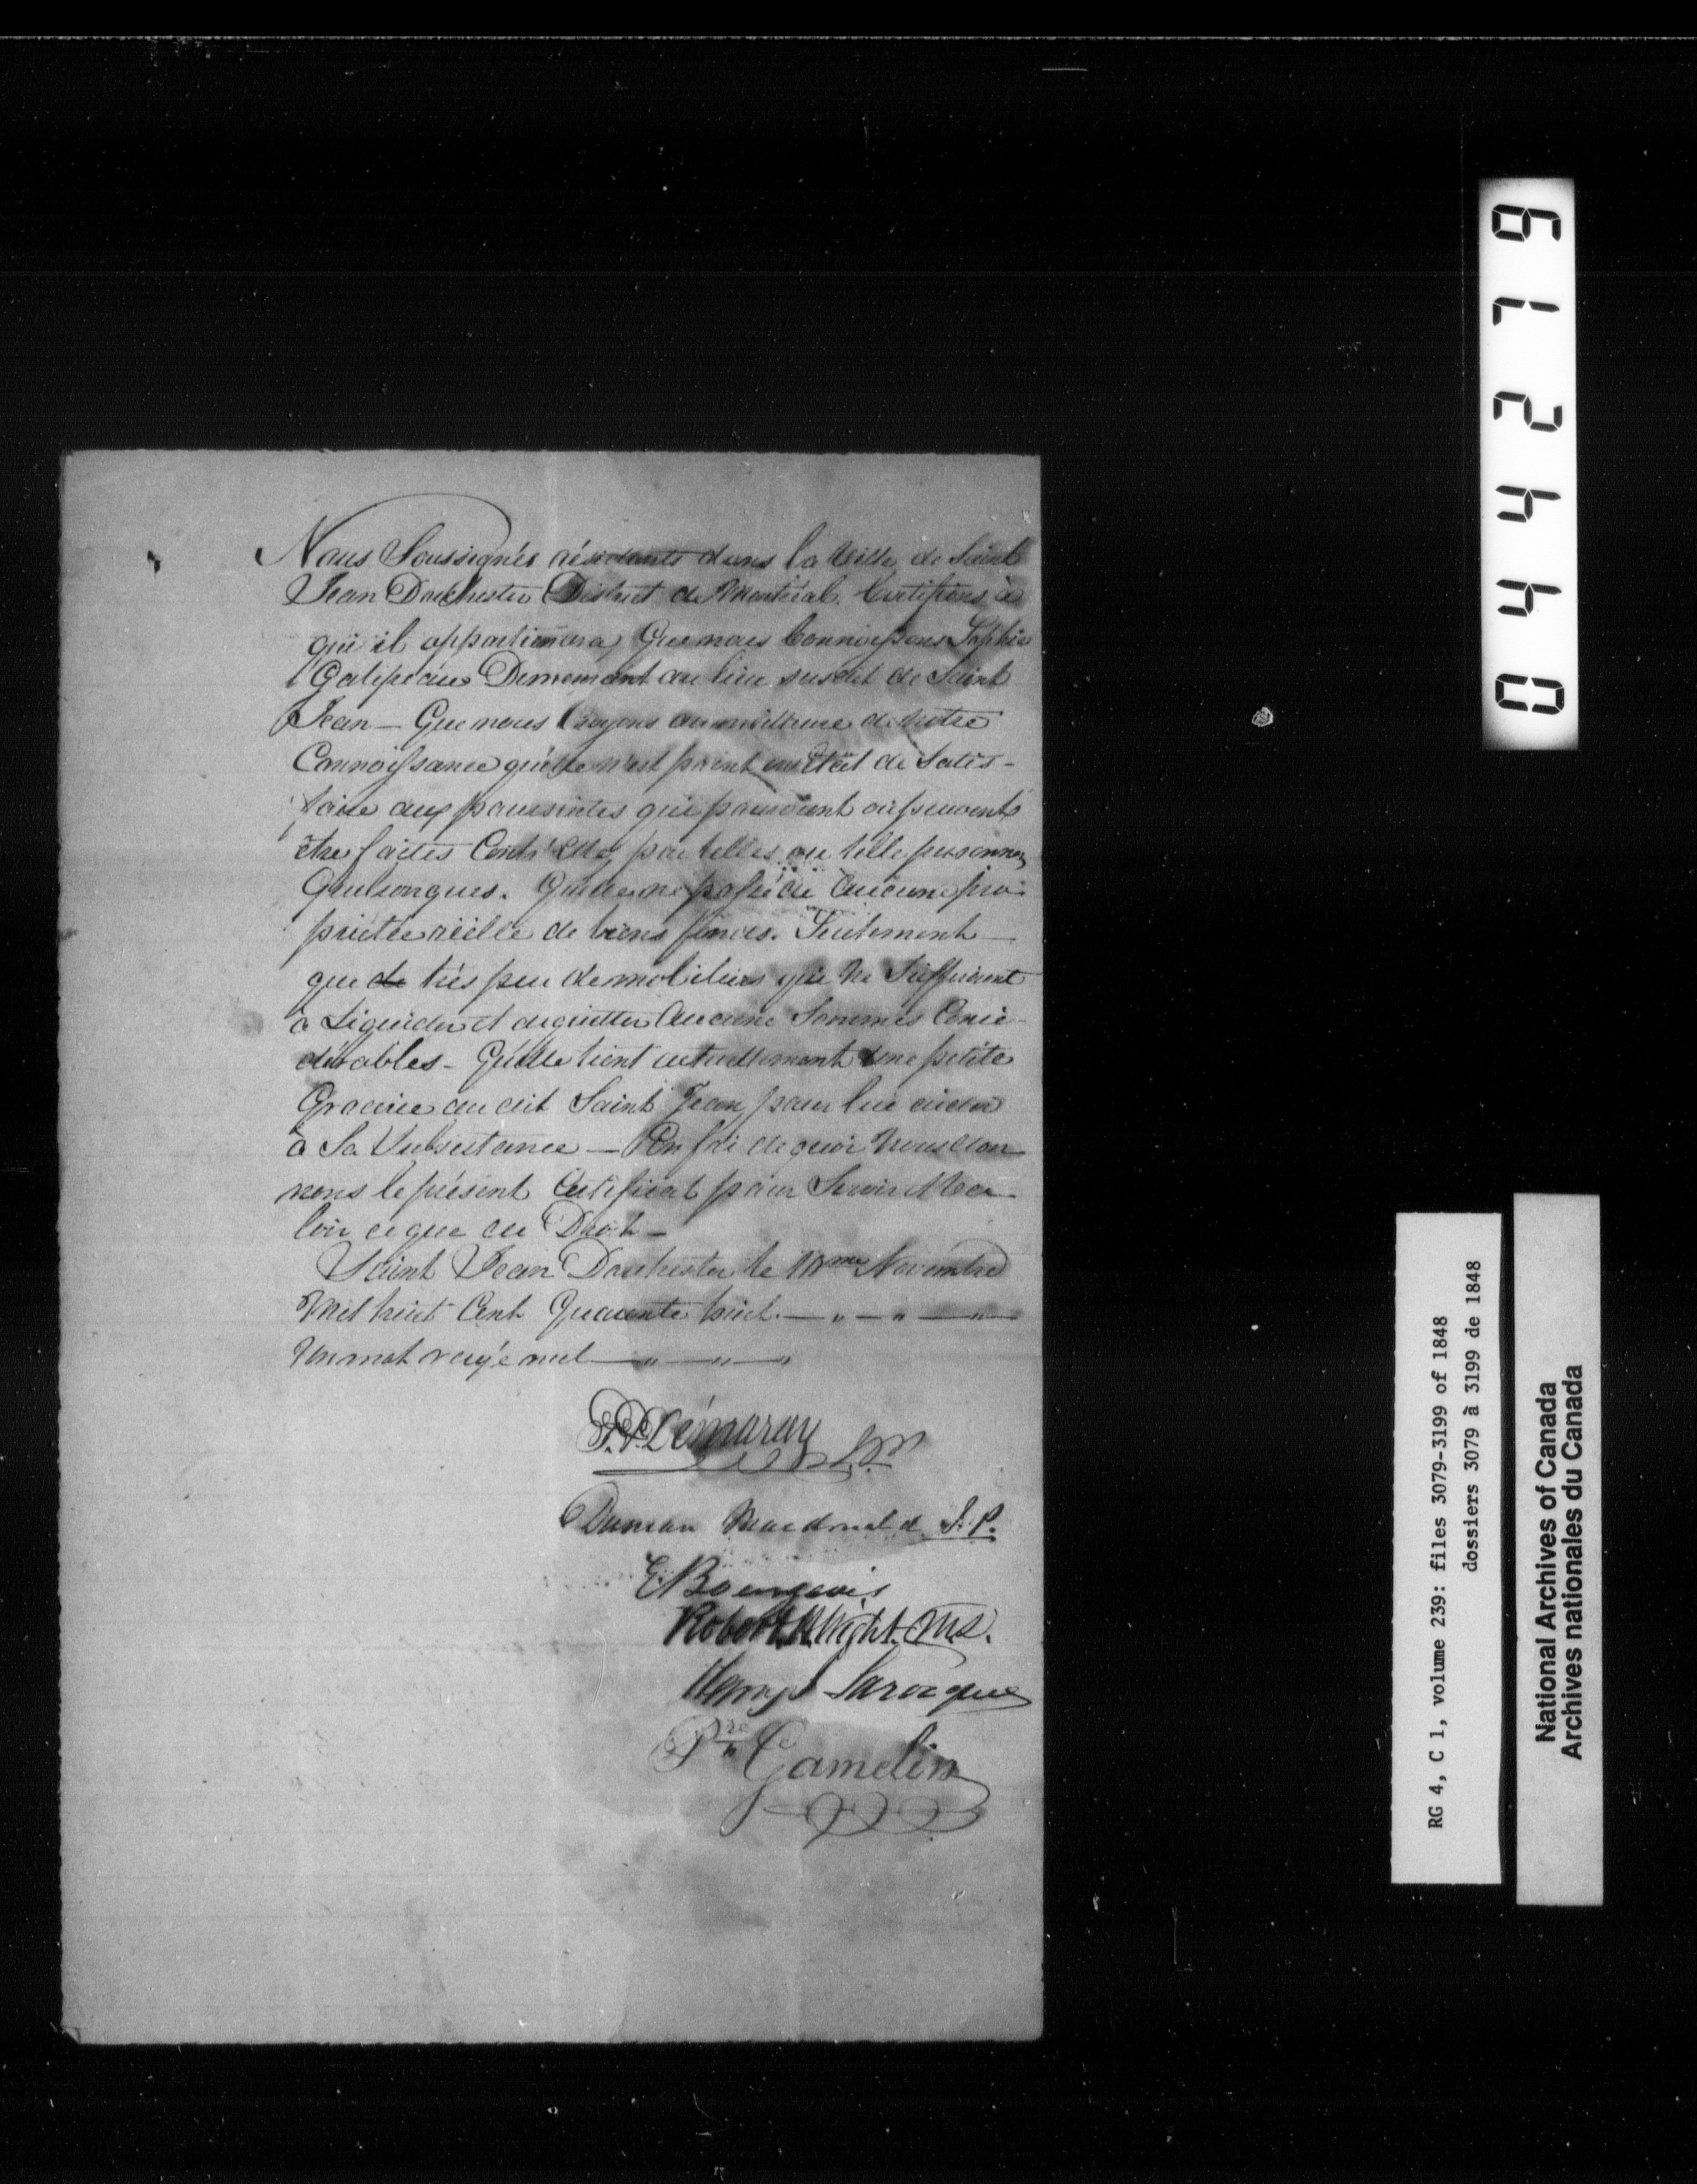 Nous Soussignés résidants dans la Ville de Saint
Jean Dorchester District de Montréal. Certifions à
qui il appartiendra, Que nous Connoissons Sophie
Galipeau Demeurant au lieu susdit de Saint
Jean — Que nous Croyons au meilleure de notre
Connoissance qu'elle n'est point en État de Satis-
faire aux poursuites qui pouroient
être faites Contr'Elle, par telles ou telle personnes
Quelconques. Qu'elle ne possède Aucune pro-
priétée réelle de biens fonds. Seulement —
que de très peu de mobiliers qui ne Suffiroient
à Liquider et Aucune Sommes Consi-
dérables - Qu'elle tient actuellement une petite
Grocerie au dit Saint Jean, pour lui aider
à Sa Subsistance — En foi de quoi Nous don-
nons le présent Certificat pour Servir et Va-
loir ce que de Droit —
Saint Jean Dorchester le 10me Novembre
Mil huit Cent Quarante huit. — " — " — " —
Un mot rayé nul — " — " — "
P.P. Démaray J.P.
Duncan Macdonald J.P.
E. Bourgeois
Robert H. Wight. M.D.
Henry Larocque
Pre Gamelin
044219
RG 4, C 1, volume 239: files 3079-3199 of 1848
dossiers 3079 à 3199 de 1848
National Archives of Canada
Archives nationales du Canada